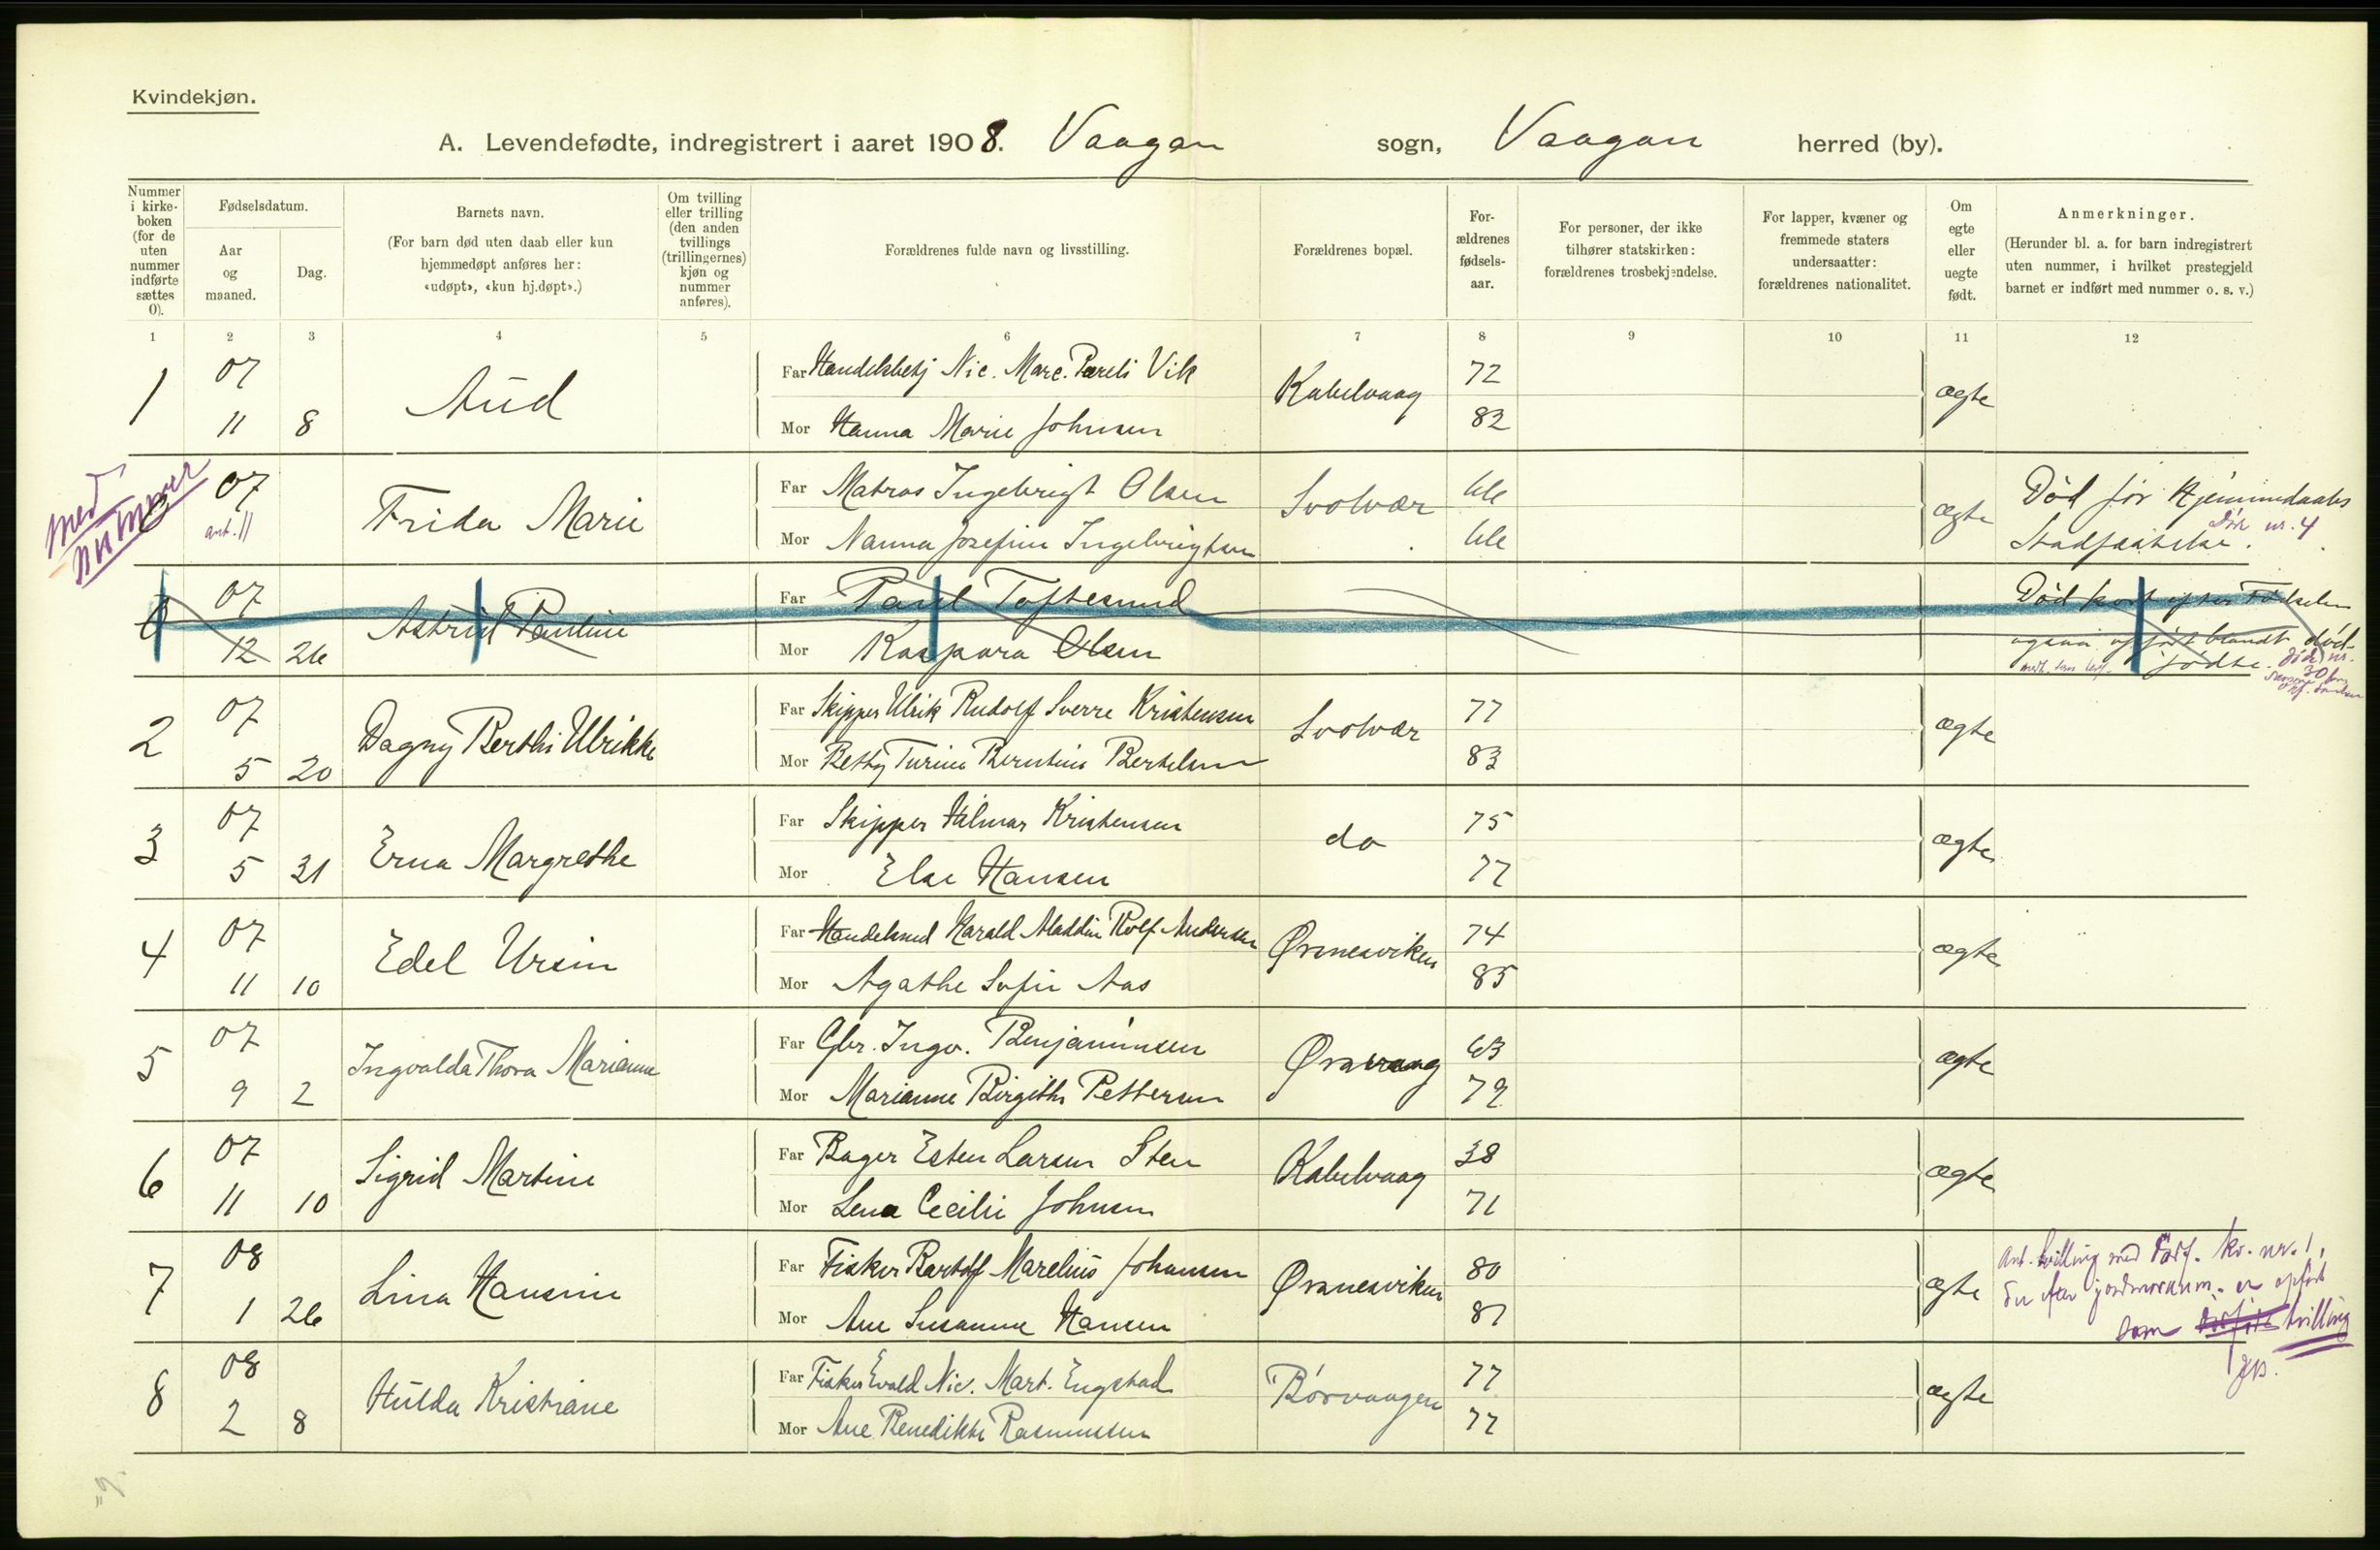 Kvindekjøn.
A. Levendefødte, indregistrert i aaret 1908. Vaagan sogn, Vaagan herred (by).
Nummer i kirke-boken (for de uten nummer indførte sættes 0).
Fødselsdatum.
Aar og maaned.
Dag.
Barnets navn.
(For barn død uten daab eller kun hjemmedøpt anføres her: «udøpt», «kun hj.døpt».)
Om tvilling eller trilling (den anden tvillings (trillingernes) kjøn og nummer anføres).
Forældrenes fulde navn og livsstilling.
Forældrenes bopæl.
For-ældrenes fødsels-aar.
For personer, der ikke tilhører statskirken: forældrenes trosbekjendelse.
For lapper, kvæner og fremmede staters undersaatter: forældrenes nationalitet.
Om egte eller uegte født.
Anmerkninger.
(Herunder bl. a. for barn indregistrert uten nummer, i hvilket prestegjeld barnet er indført med nummer o. s. v.)
1 2 3 4 5 6 7 8 9 10 11 12
1 07 11 8 Aud
Far Handelsbetj Nic. Marc. Pareli Vik Kabelvaag 72 ægte
Mor Hanna Marie Johnsen 82
med nummer
0 07 ant. 11 Frida Marie
Far Matros Ingebrigt Olsen Svolvær 66 ægte Død før Hjemmedaabs
Mor Nanna Josefine Ingebrigtsen 66 Stadfæstelse. Døde nr. 4
0 07 12 26 Astrid Pauline
Far Paul Toftesund Død kort efter Fødselen
Mor Kaspara Olsen ogsaa opført blandt død-
fødte.
2 07 5 20 Dagny Berthi Ulrikke
Far Skipper Ulrik Rudolf Sverre Kristensen Svolvær 77 ægte
Mor Betty Turine Berntine Bertelsen 83
3 07 5 31 Erna Margrethe
Far Skipper Hilmar Kristensen do 75 ægte
Mor Else Hansen 77
4 07 11 10 Edel Ursin
Far Handelsmd Harald Aladdin Rolf Andersen Ørsnesviken 74 ægte
Mor Agathe Sofie Aas 85
5 07 9 2 Ingvalda Thora Marianne
Far Gbr. Ingv. Benjaminsen Ørsvaag 63 ægte
Mor Marianne Birgithe Pettersen 72
6 07 11 10 Sigrid Martine
Far Bager Esten Larsen Sten Kabelvaag 38 ægte
Mor Lena Cecilie Johnsen 71
7 08 1 26 Lina Hansine
Far Fisker Bartolf Marelius Johansen Ørsnesviken 80 ægte Ant. tvilling med Dødf. kv. nr. 1,
Mor Ane Susanne Hansen 81 er opført
som tvilling
8 08 2 8 Hulda Kristiane
Far Fisker Evald Nic. Mart. Engstad Børvaagen 77 ægte
Mor Ane Benedikte Rasmussen 77